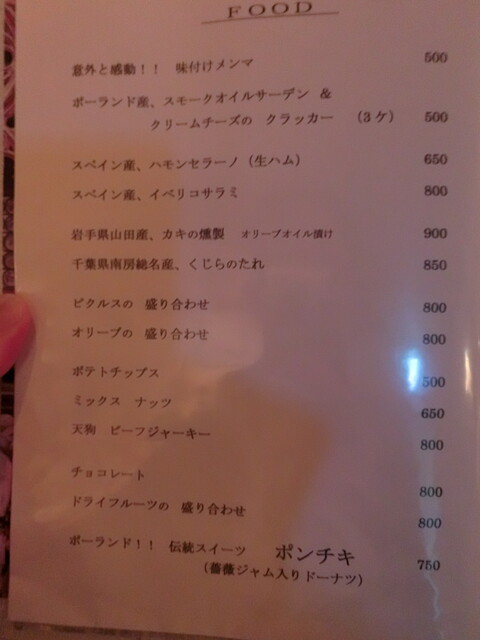 FOOD
意外と感動!! 味付けメンマ 500
ポーランド産、スモークオイルサーデン &
クリームチーズの クラッカー (3ケ) 500
スペイン産、ハモンセラーノ(生ハム) 650
スペイン産、イベリコサラミ 800
岩手県山田産、カキの燻製 オリーブオイル漬け 900
千葉県南房総名産、くじらのたれ 850
ピクルスの 盛り合わせ 800
オリーブの 盛り合わせ 800
ポテトチップス 500
ミックス ナッツ 650
天狗 ビーフジャーキー 800
チョコレート 800
ドライフルーツの 盛り合わせ 800
ポーランド!! 伝統スイーツ ポンチキ 750
(薔薇ジャム入りドーナツ)